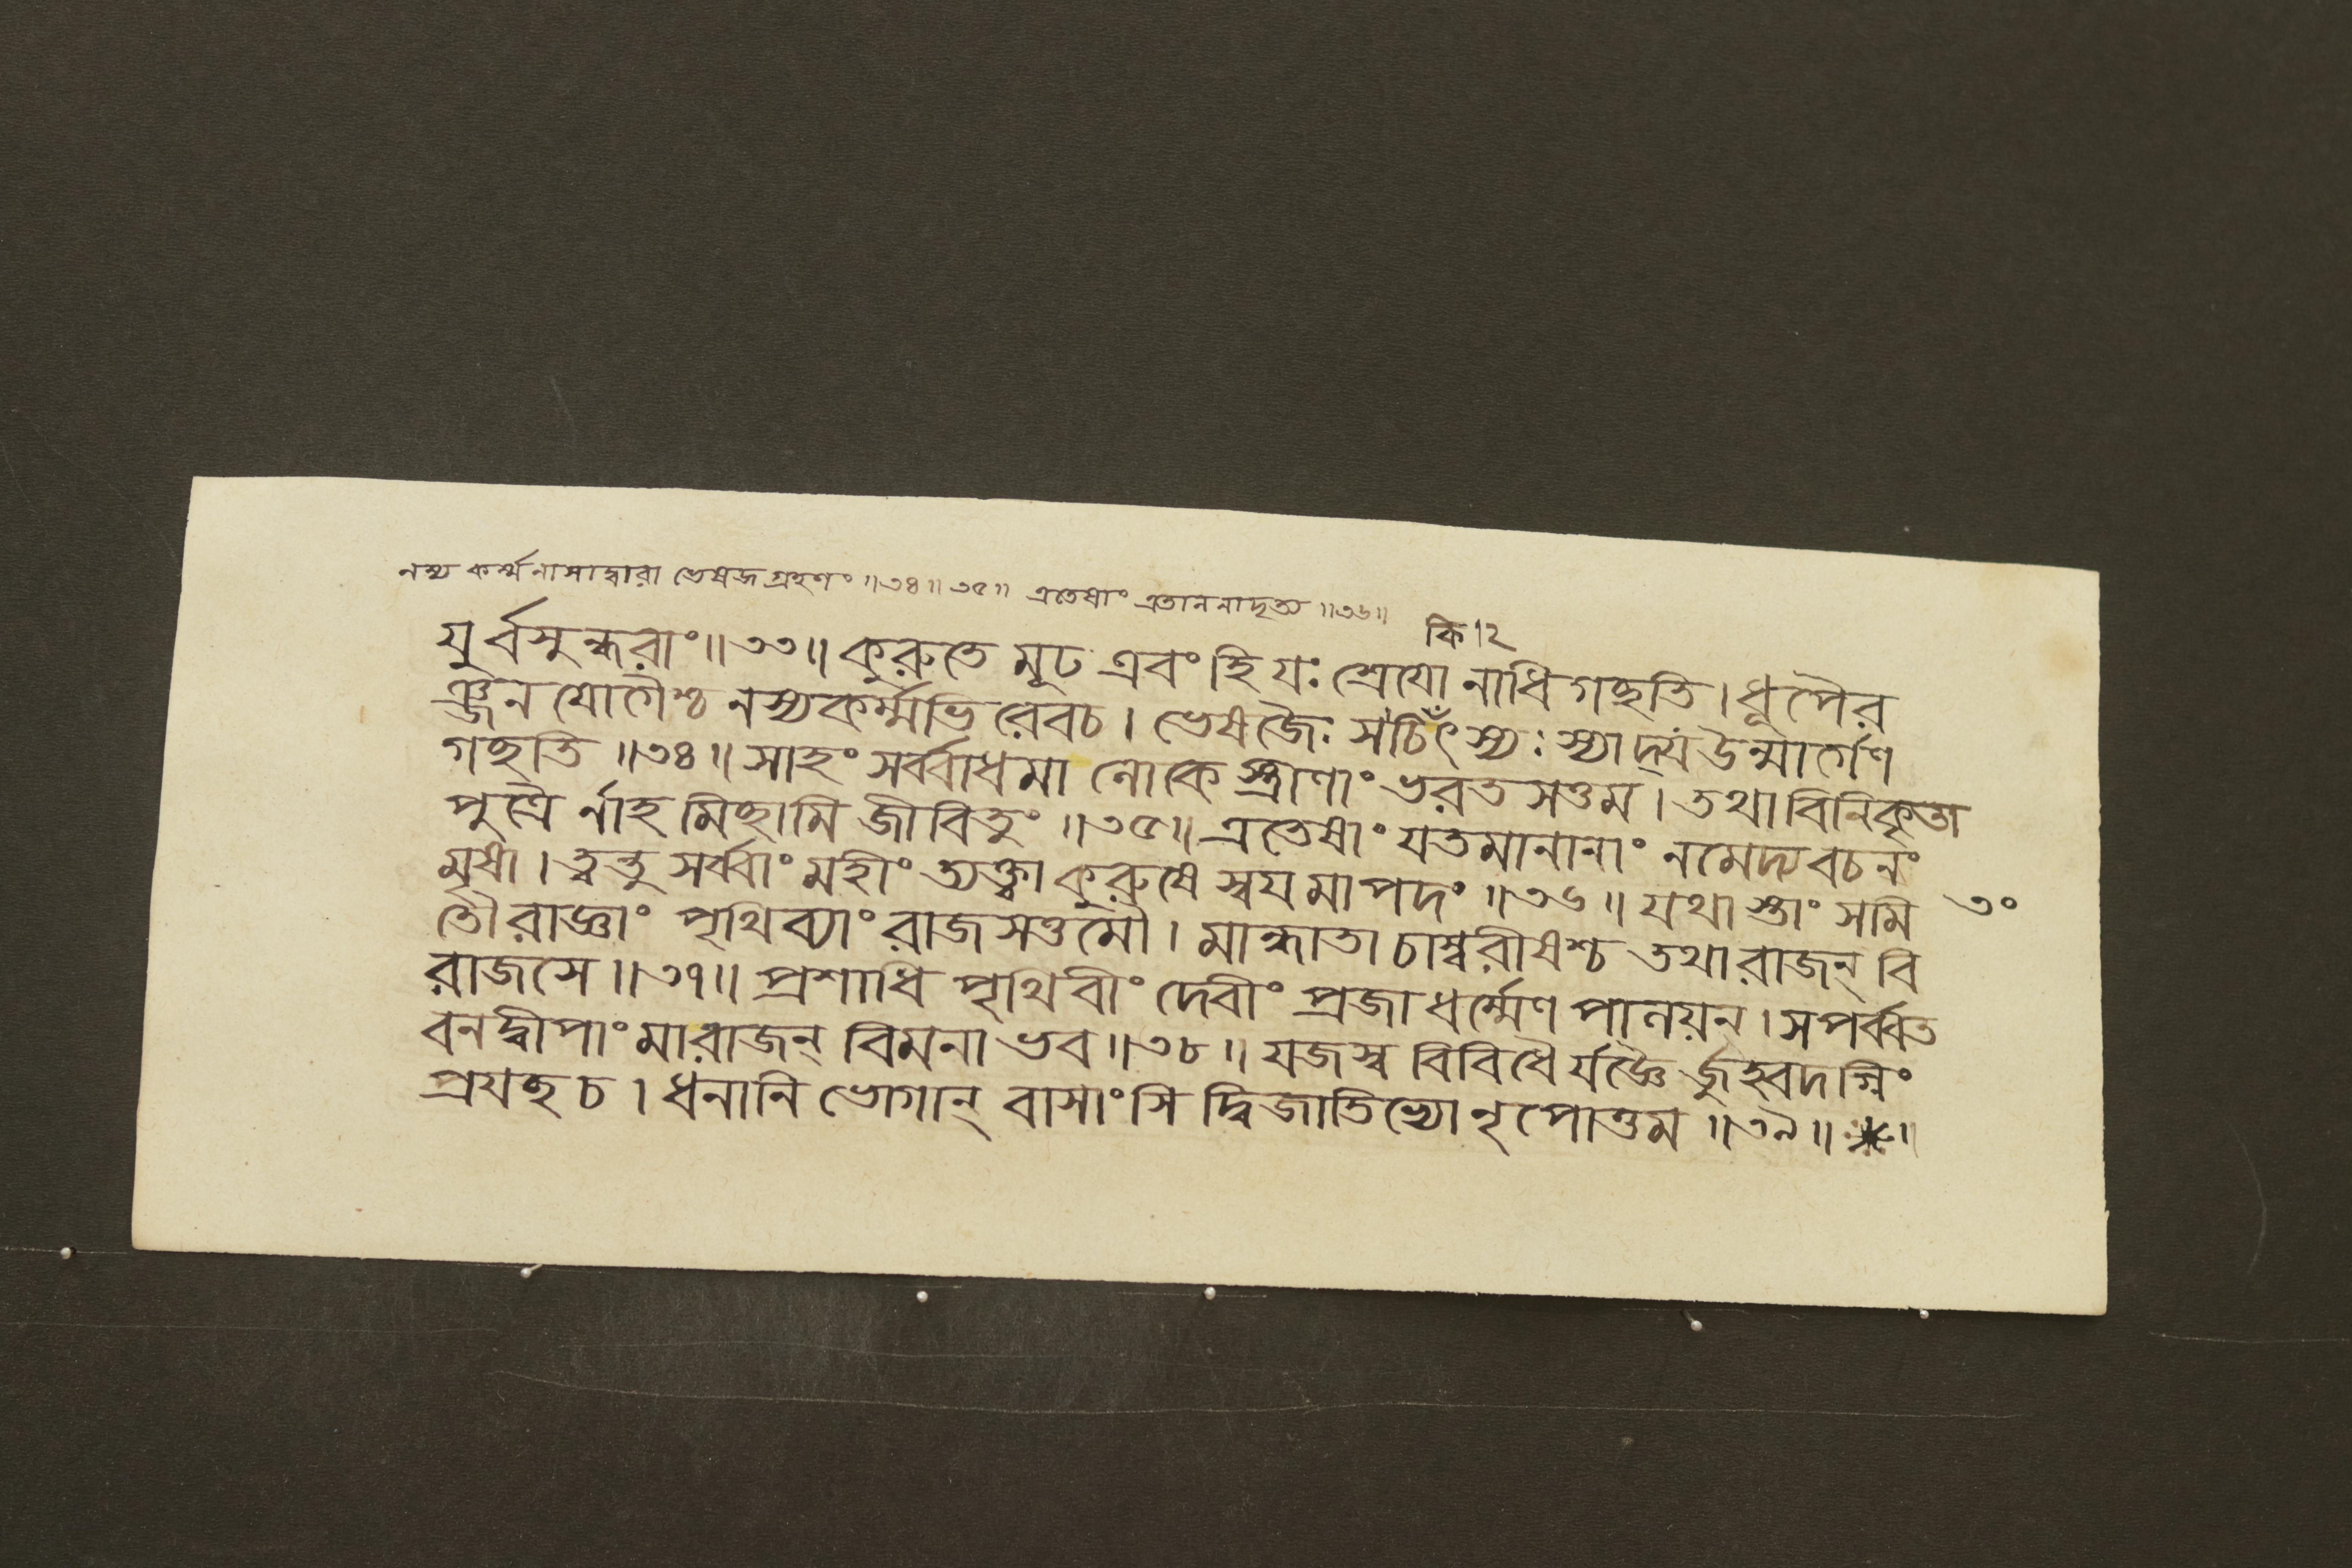 নস্য কর্ম্ম নাসাদ্বারা ভেষজ গ্রহণং ॥৩৪॥৩৫॥ এতেষাং এতাননাদৃত্য ॥৩৬॥
কি।২
যুর্বসুন্ধরাং॥৩৩॥ কুরুতে মূঢ এবং হি যঃ শ্রেযো নাধিগচ্ছতি। ধূপৈর
ঞ্জনযোগৈশ্চ নস্যকর্ম্মভিরেবচ। ভেষজৈঃ স চিঁৎস্যঃ স্যাদ্য উন্মার্গেণ
গচ্ছতি ॥৩৪॥ সাহং সর্ব্বাধমা লোকে স্ত্রীণাং ভরতসত্তম। তথা বিনিকৃতা
পুত্রৈ র্নাহমিচ্ছামি জীবিতুং ॥৩৫॥ এতেষাং যতমানানাং নমেদ্য বচনং
মৃষা। ত্বন্তু সর্ব্বাং মহীং ত্যক্ত্বা কুরুষে স্বযমাপদং ॥৩৬॥ যথাস্তাং সমি ৩০
তৌ রাজ্ঞাং পৃথিব্যাং রাজসত্তমৌ। মান্ধাতা চাম্বরীষশ্চ তথা রাজন্ বি
রাজসে ॥৩৭॥ প্রশাধি পৃথিবীং দেবীং প্রজাধর্ম্মেণ পালয়ন। সপর্ব্বত
বনদ্বীপাং মারাজন্ বিমনা ভব ॥৩৮॥ যজস্ব বিবিধৈর্যজ্ঞৈ র্জুহ্বদগ্নিং
প্রযচ্ছ চ। ধনানি ভোগান্ বাসাংসি দ্বিজাতিভ্যো নৃপোত্তম ॥৩৯॥ *॥